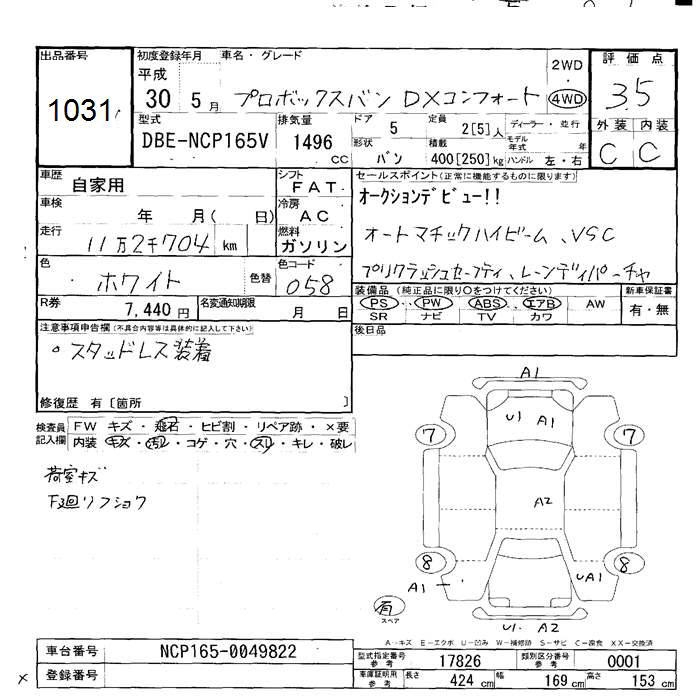 出品番号
1031
初度登録年月
平成
30 5 月
車名・グレード
プロボックスバン DXコンフォート
2WD
・
4WD
評価点
3.5
外装 内装
C C
型式
DBE-NCP165V
排気量
1496 CC
ドア 5
形状 バン
定員 2[5] 人
積載 400[250] kg
ディーラー・並行
モデル年式 年
ハンドル 左・右
車歴 自家用
車検 年 月( 日)
走行 11万2千704 km
色 ホワイト 色替
シフト FAT
冷房 AC
燃料 ガソリン
色コード 058
セールスポイント(正常に機能するものに限ります)
オークションデビュー!!
オートマチックハイビーム、VSC
プリクラッシュセーフティ、レーンディパーチャ
R券 7,440 円
名変通知期限 月 日
装備品 (純正品に限り○をつけてください)
PS PW ABS エアB AW
SR ナビ TV カワ
新車保証書
有・無
注意事項申告欄(不具合内容等は具体的に記入して下さい)
後日品
○スタッドレス装着
修復歴 有〔箇所 〕
検査員記入欄
FW キズ・飛石・ヒビ割・リペア跡・×要
内装 キズ・汚レ・コゲ・穴・スレ・キレ・破レ
荷室キズ
下廻リフショク
A1
U1 A1
7 7
A2
8 8
A1 UA1
有
スペア
U1 A2
A‥キズ E‥エクボ U‥凹み W‥補修跡 S‥サビ C‥腐食 XX‥交換済
車台番号 NCP165-0049822
登録番号
型式指定番号 参考 17826
類別区分番号 参考 0001
車庫証明用 参考
長さ 424 cm 幅 169 cm 高さ 153 cm
×